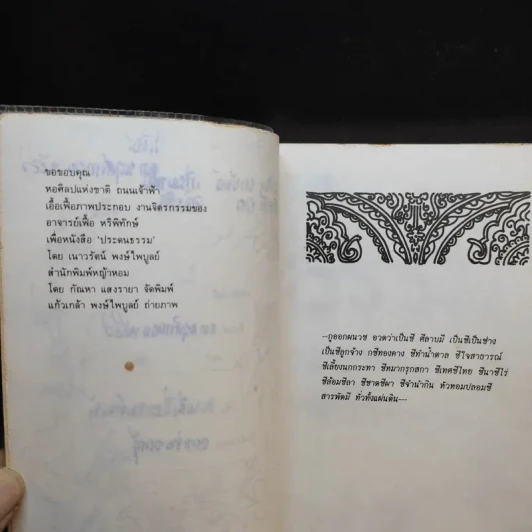 ขอขอบคุณ
หอศิลปแห่งชาติ ถนนเจ้าฟ้า
เอื้อเฟื้อภาพประกอบ งานจิตรกรรมของ
อาจารย์เฟื้อ หริพิทักษ์
เพื่อหนังสือ 'ประตนธรรม'
โดย เนาวรัตน์ พงษ์ไพบูลย์
สำนักพิมพ์หญ้าหอม
โดย กัณหา แสงรายา จัดพิมพ์
แก้วเกล้า พงษ์ไพบูลย์ ถ่ายภาพ
—กูออกผนวช อวดว่าเป็นชี ศีลาบมี เป็นชีเป็นช่าง
เป็นชีลูกจ้าง กชีทองคาง ชีทำน้ำตาล ชีใจสาธารณ์
ชีเลี้ยงนกกระทา ชีหมากรุกสกา ชีเทศชีไทย ชีนาชีไร่
ชีล้อมชีลา ชีชาดชีผา ชีจำนำกิน หัวหอมปลอมชี
สารพัดมี ทั่วทั้งแผ่นดิน---